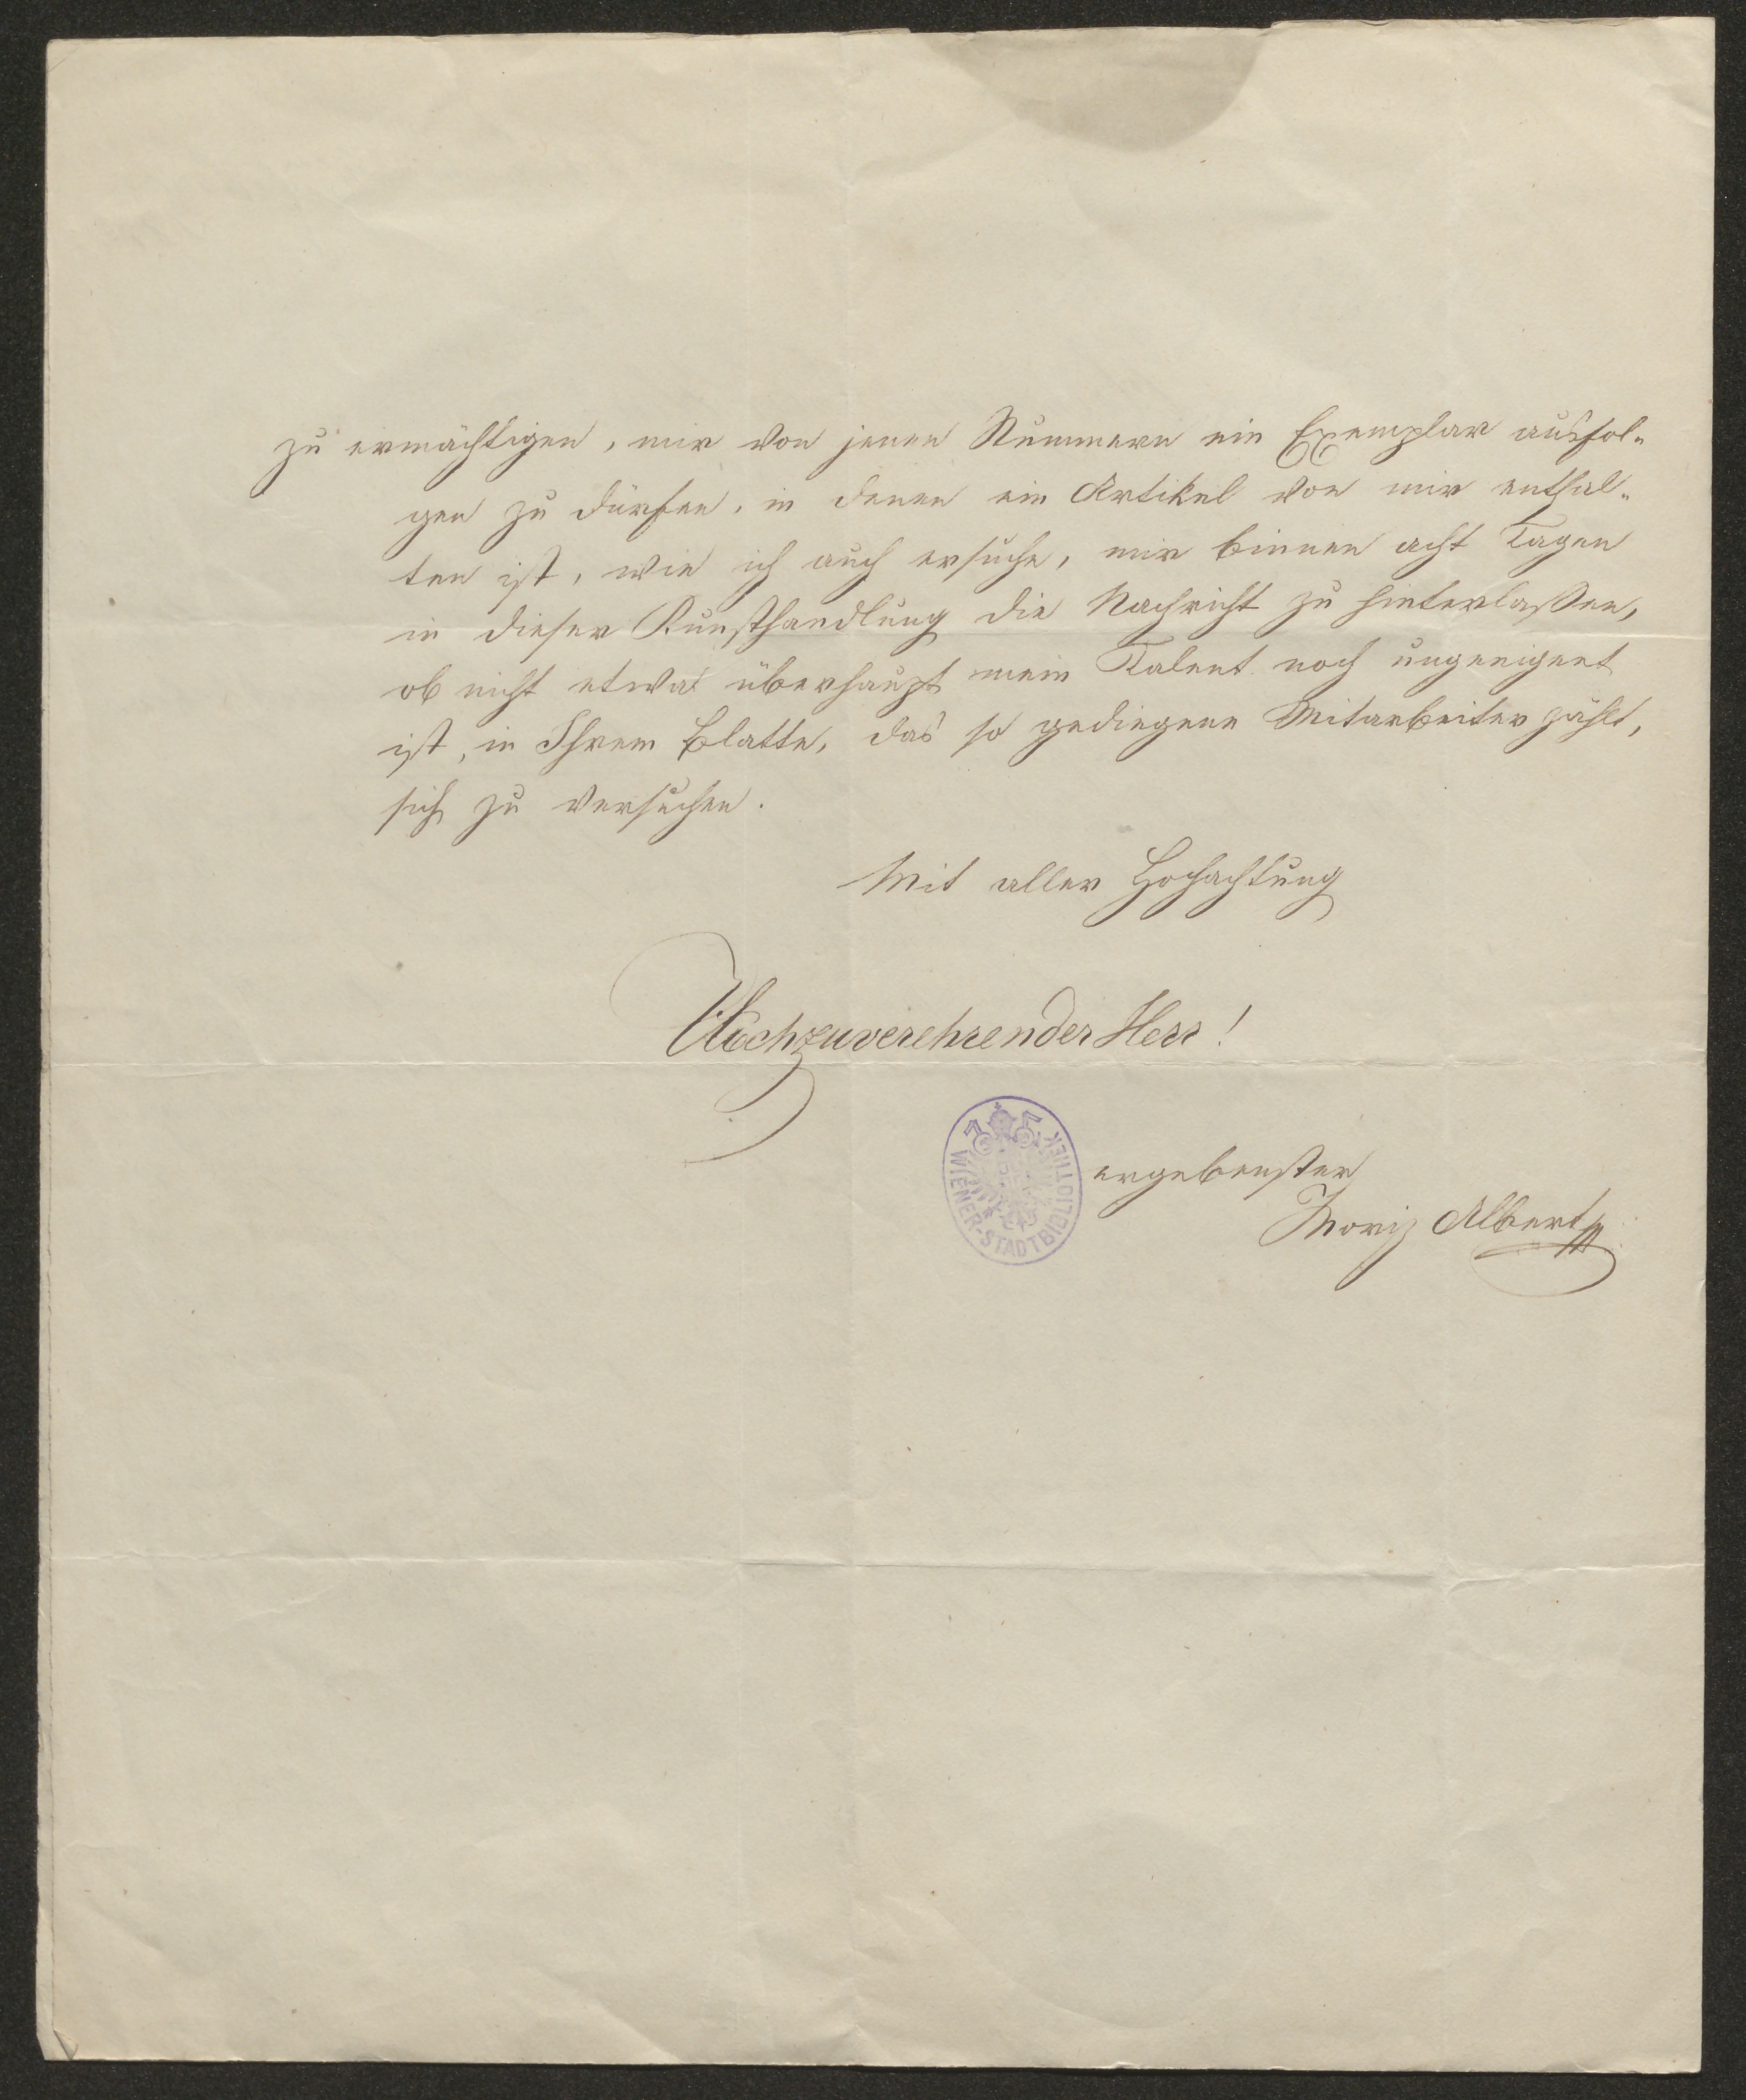 zu ermächtigen, mir von jenen Nummern ein Exemplar ausfol-
gen zu dürfen, in denen ein Artikel von mir enthal-
ten ist, wie ich auch ersuche, mir binnen acht Tagen
in dieser Kunsthandlung die Nachricht zu hinterlaßen,
ob nicht etwa überhaupt mein Talent noch ungeeignet
ist, in Ihrem Blatte, das so gediegene Mitarbeiter zählt,
sich zu versuchen.
Mit aller Hochachtung
Hochzuverehrender Herr!
WIENER-STADTBIBLIOTHEK
ergebenster
Moriz Albert